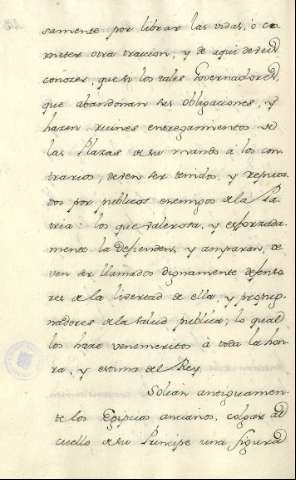 samente por librar las vidas, ò co-
meter otra traicion, y de aqui deveis
conozer, que si los tales Governadores,
que abandonan sus obligaciones, y
hazen ruines entregamientos de
las Plazas de su mando à los con-
trarios, deven ser tenidos, y reputa-
dos por publicos enemigos de la Pa-
tria: los que valerosa, y esforzada-
mente la defienden, y amparan, de-
ven ser llamados dignamente defenso-
res de la livertad de ella, y propug-
nadores de la salud publica; lo qual
los haze venemeritos à toda la hon-
ra, y estima del Rey.
Solian antiguamen-
te los Egipcios ancianos, colgar al
cuello de su Principe una figura